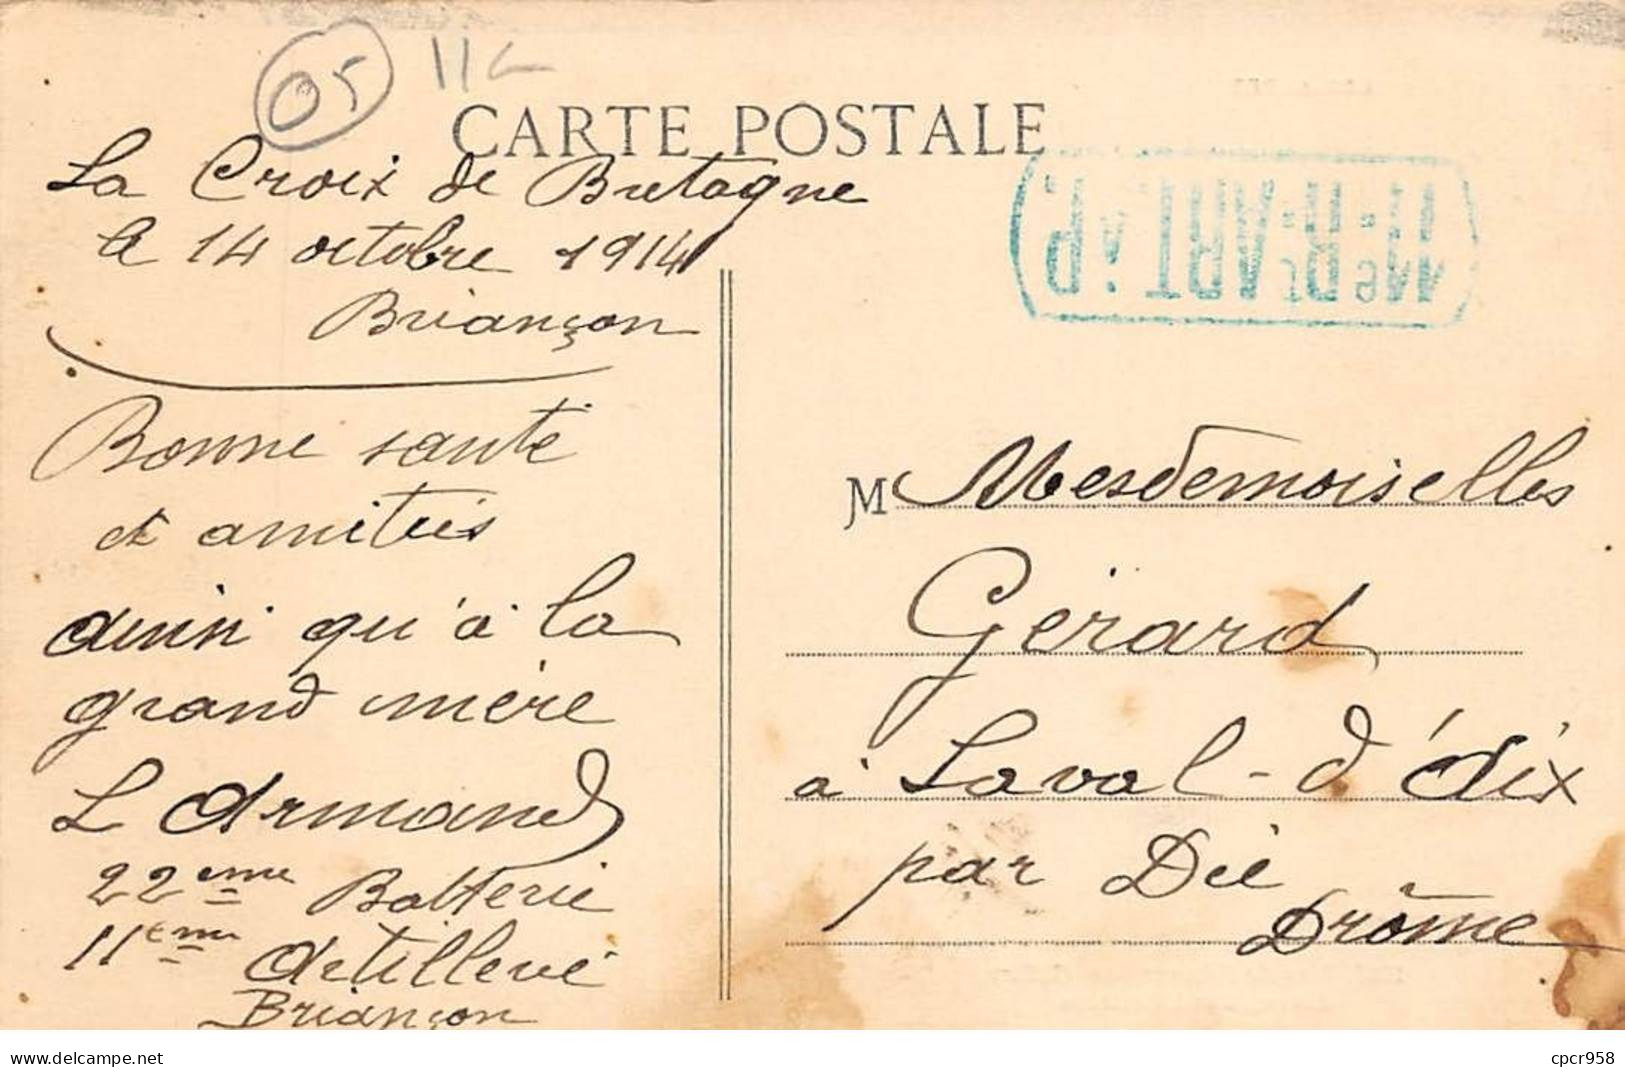 05 11
CARTE POSTALE
La Croix de Bretagne
le 14 octobre 1914
Briançon
Bonne santé
et amitiés
ainsi qu'à la
grand mère
L Armand
22eme Batterie
11eme Artillerie
Briançon
M Mesdemoiselles
Gérard
à Laval-d'Aix
par Die
Drôme
delcampe.net
cpcr958